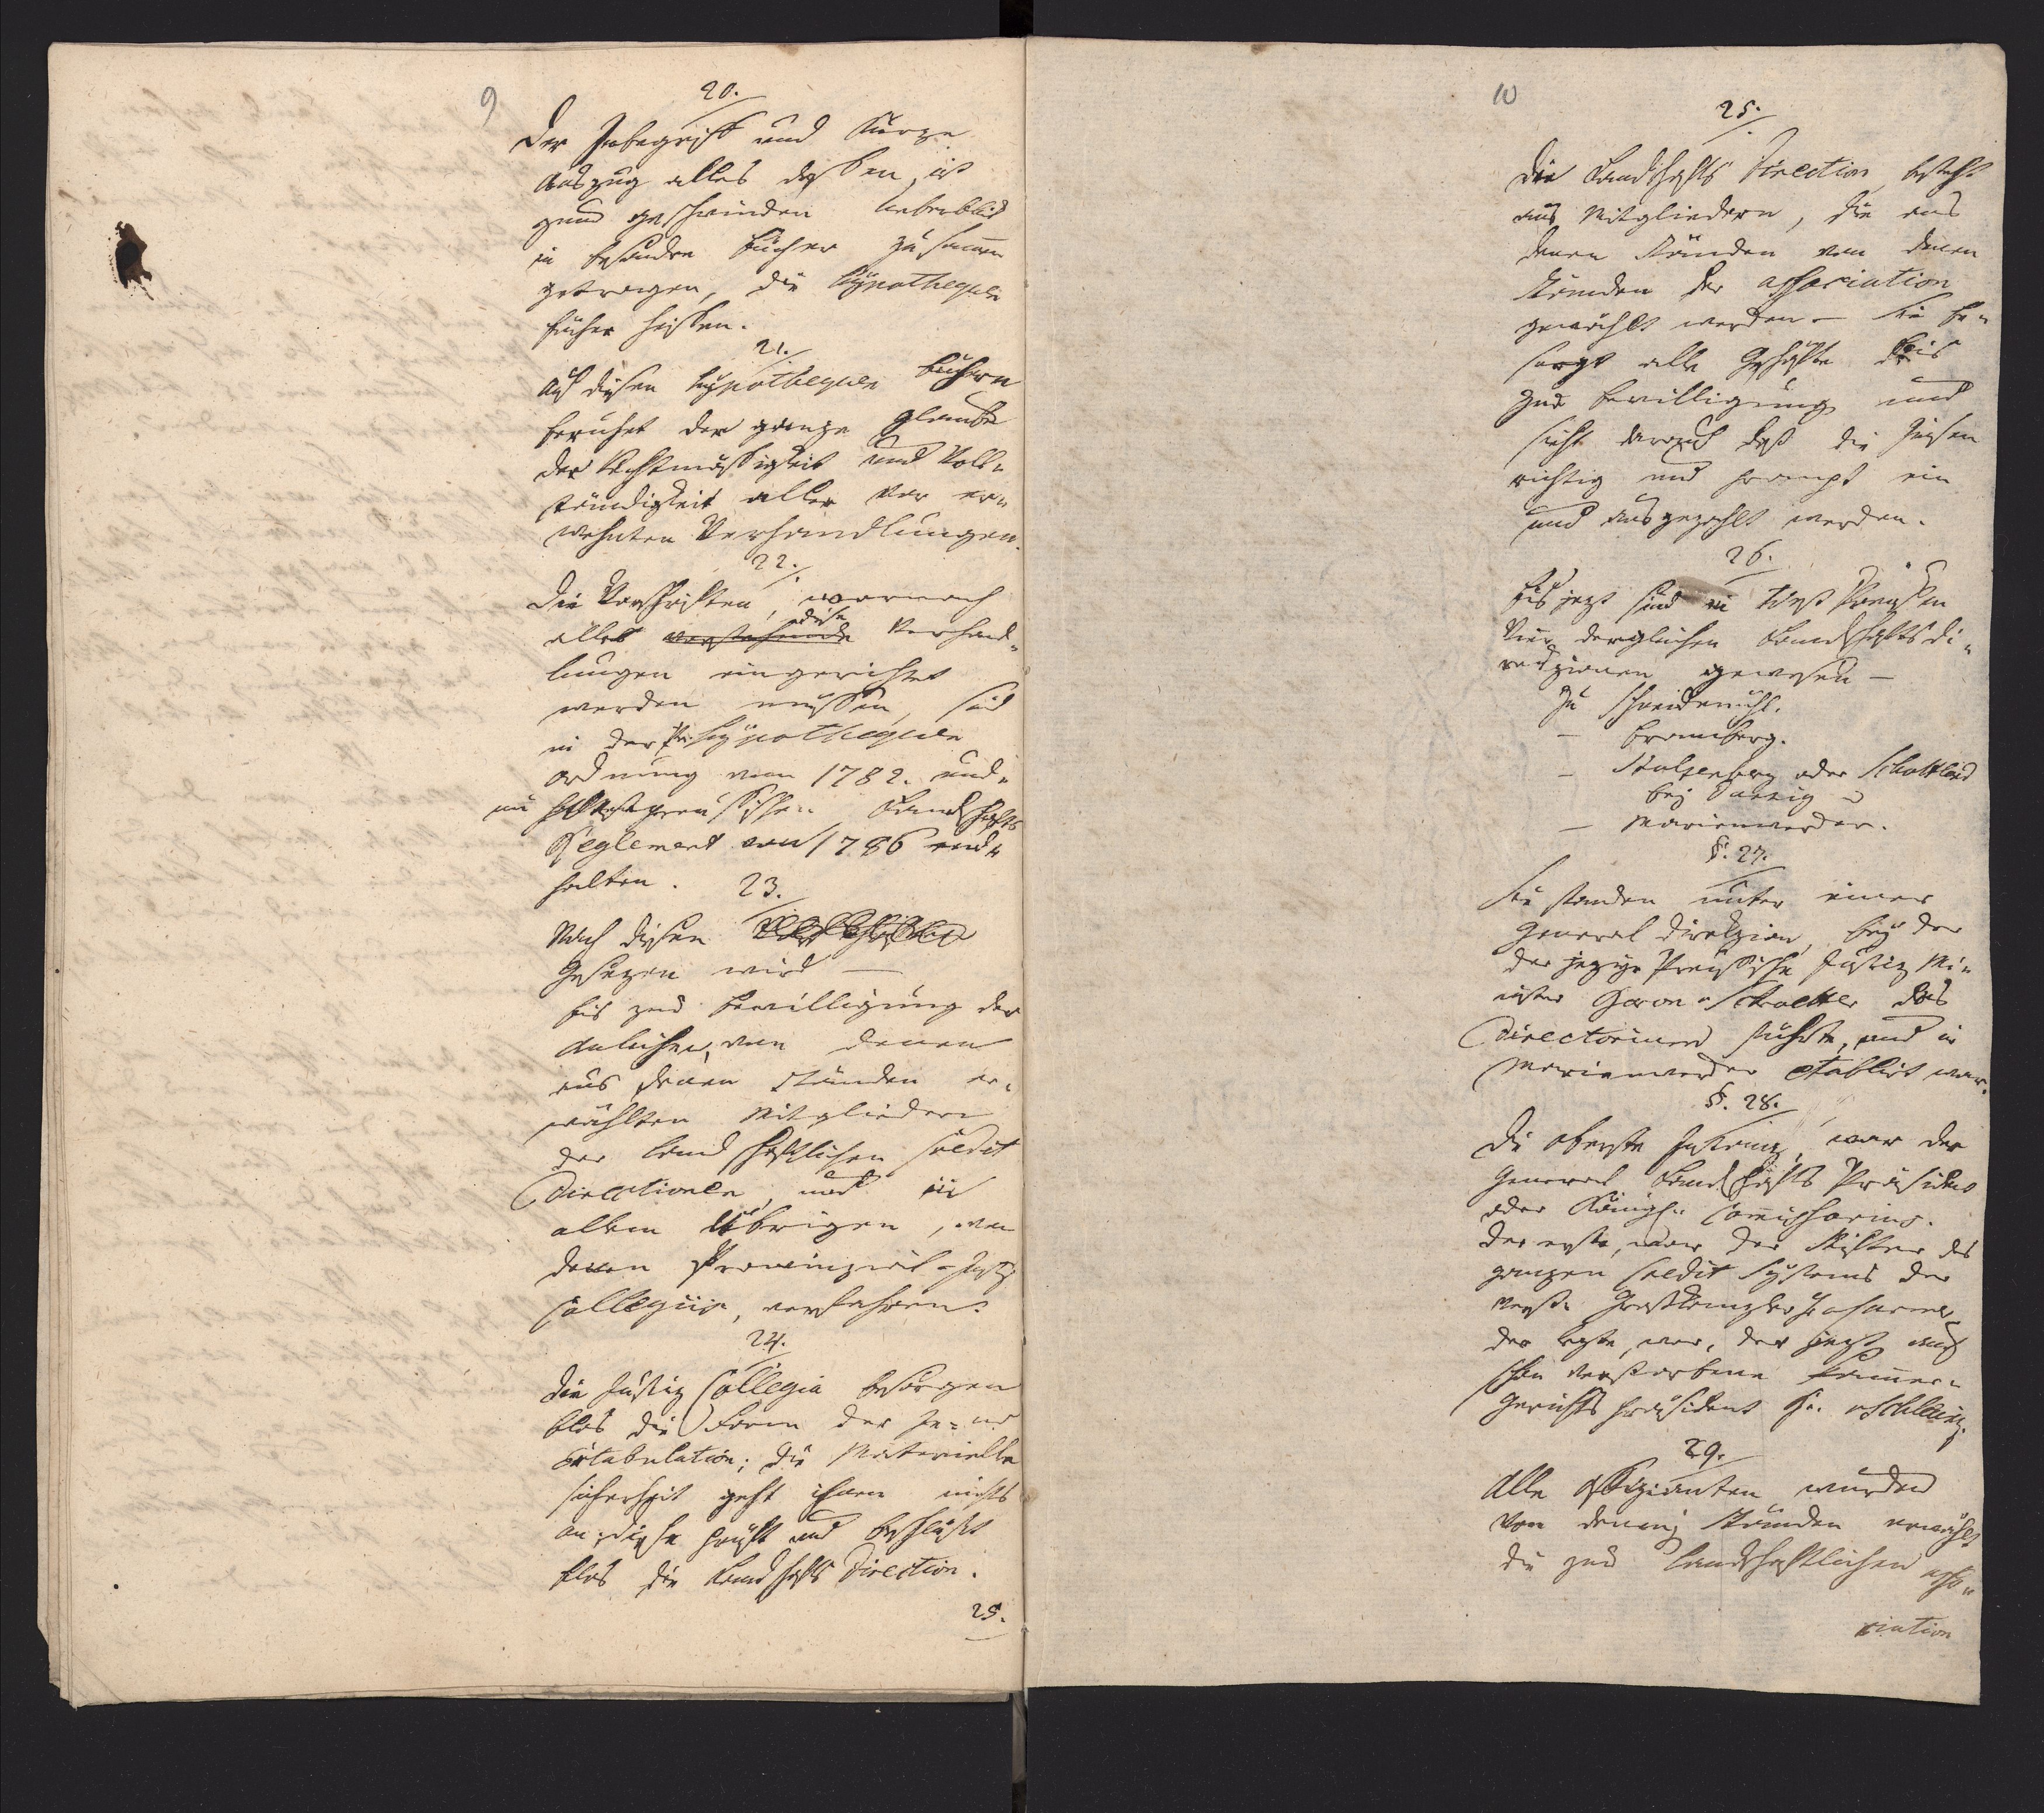 9
20.
Der Inbegriff und Kurze
Auszug alles dessen, ist
zum geschwinden Ueberblick
in besondre Bücher zusamen
getragen, die Hypothequen
bücher heissen.
21.
Auf diesen Hypothequen Büchern
beruhet der ganze Glaube
der Rechtmässigkeit und Voll-
ständigkeit aller vor er-
wehnten Verhandlungen.
22.
Die Vorschriften, wornach
alle diese Verhand-
lungen eingerichtet
werden müssen, sind
in der Pr. Hypothequen
ordnung vom 1782. und
im Westpreussischen Landschafts
Reglement von 1786 ent-
halten.
23.
Nach diesen
Gesezen wird —
bis zur Bewilligung der
Anleihen, von denen
aus denen Ständen er-
wählten Mitgliedern
der landschaftlichen Credit
Directionen, und in
allem übrigen, von
denen Provinzial-Justiz
Collegiis, verfahren.
24.
Die Justiz Collegia besorgen
blos die Form der In-
tabulation; die Materielle
sicherheit geht ihnen nichts
an, diese prüft und beschließt
blos die Landschafts Direction.
25.
10
25.
Die Landschafts Direction besteht
aus Mitgliedern, die aus
denen Ständen von denen
Ständen der association
gewählt werden — Sie be-
sorgt alle Geschäfte bis
zur Bewilligung und
sieht darauf daß die Zinsen
richtig und prompt ein
und ausgezahlt werden.
26.
Bis jezt sind in West Preussen
Vier dergleichen Landschafts Di-
rectzionen gewesen —
Zu Schneidemühl.
— Bromberg.
— Stolzenberg oder Schottland
bey Danzig u
— Marienwerder.
§. 27.
Sie standen unter einer
General Direktzion, bey der
der jezige Preussische Justiz Mi-
nister H von Schroetter das
Directorium führte, und in
Marienwerder etablirt war.
§. 28.
Die oberste Instanz, war der
General Landschafts Präsident
oder Königl. Commissarius.
Der erste, war der Stifter des
ganzen Credit Systems der
Großkanzler H v Carmer,
der lezte, war, der jezt auch
schon verstorbene Kammer-
Gerichts Präsident H. v Schleinitz.
29.
Alle Offizianten wurden
von denenj Ständen erwählt
die zur landschaftlichen asso-
ciation